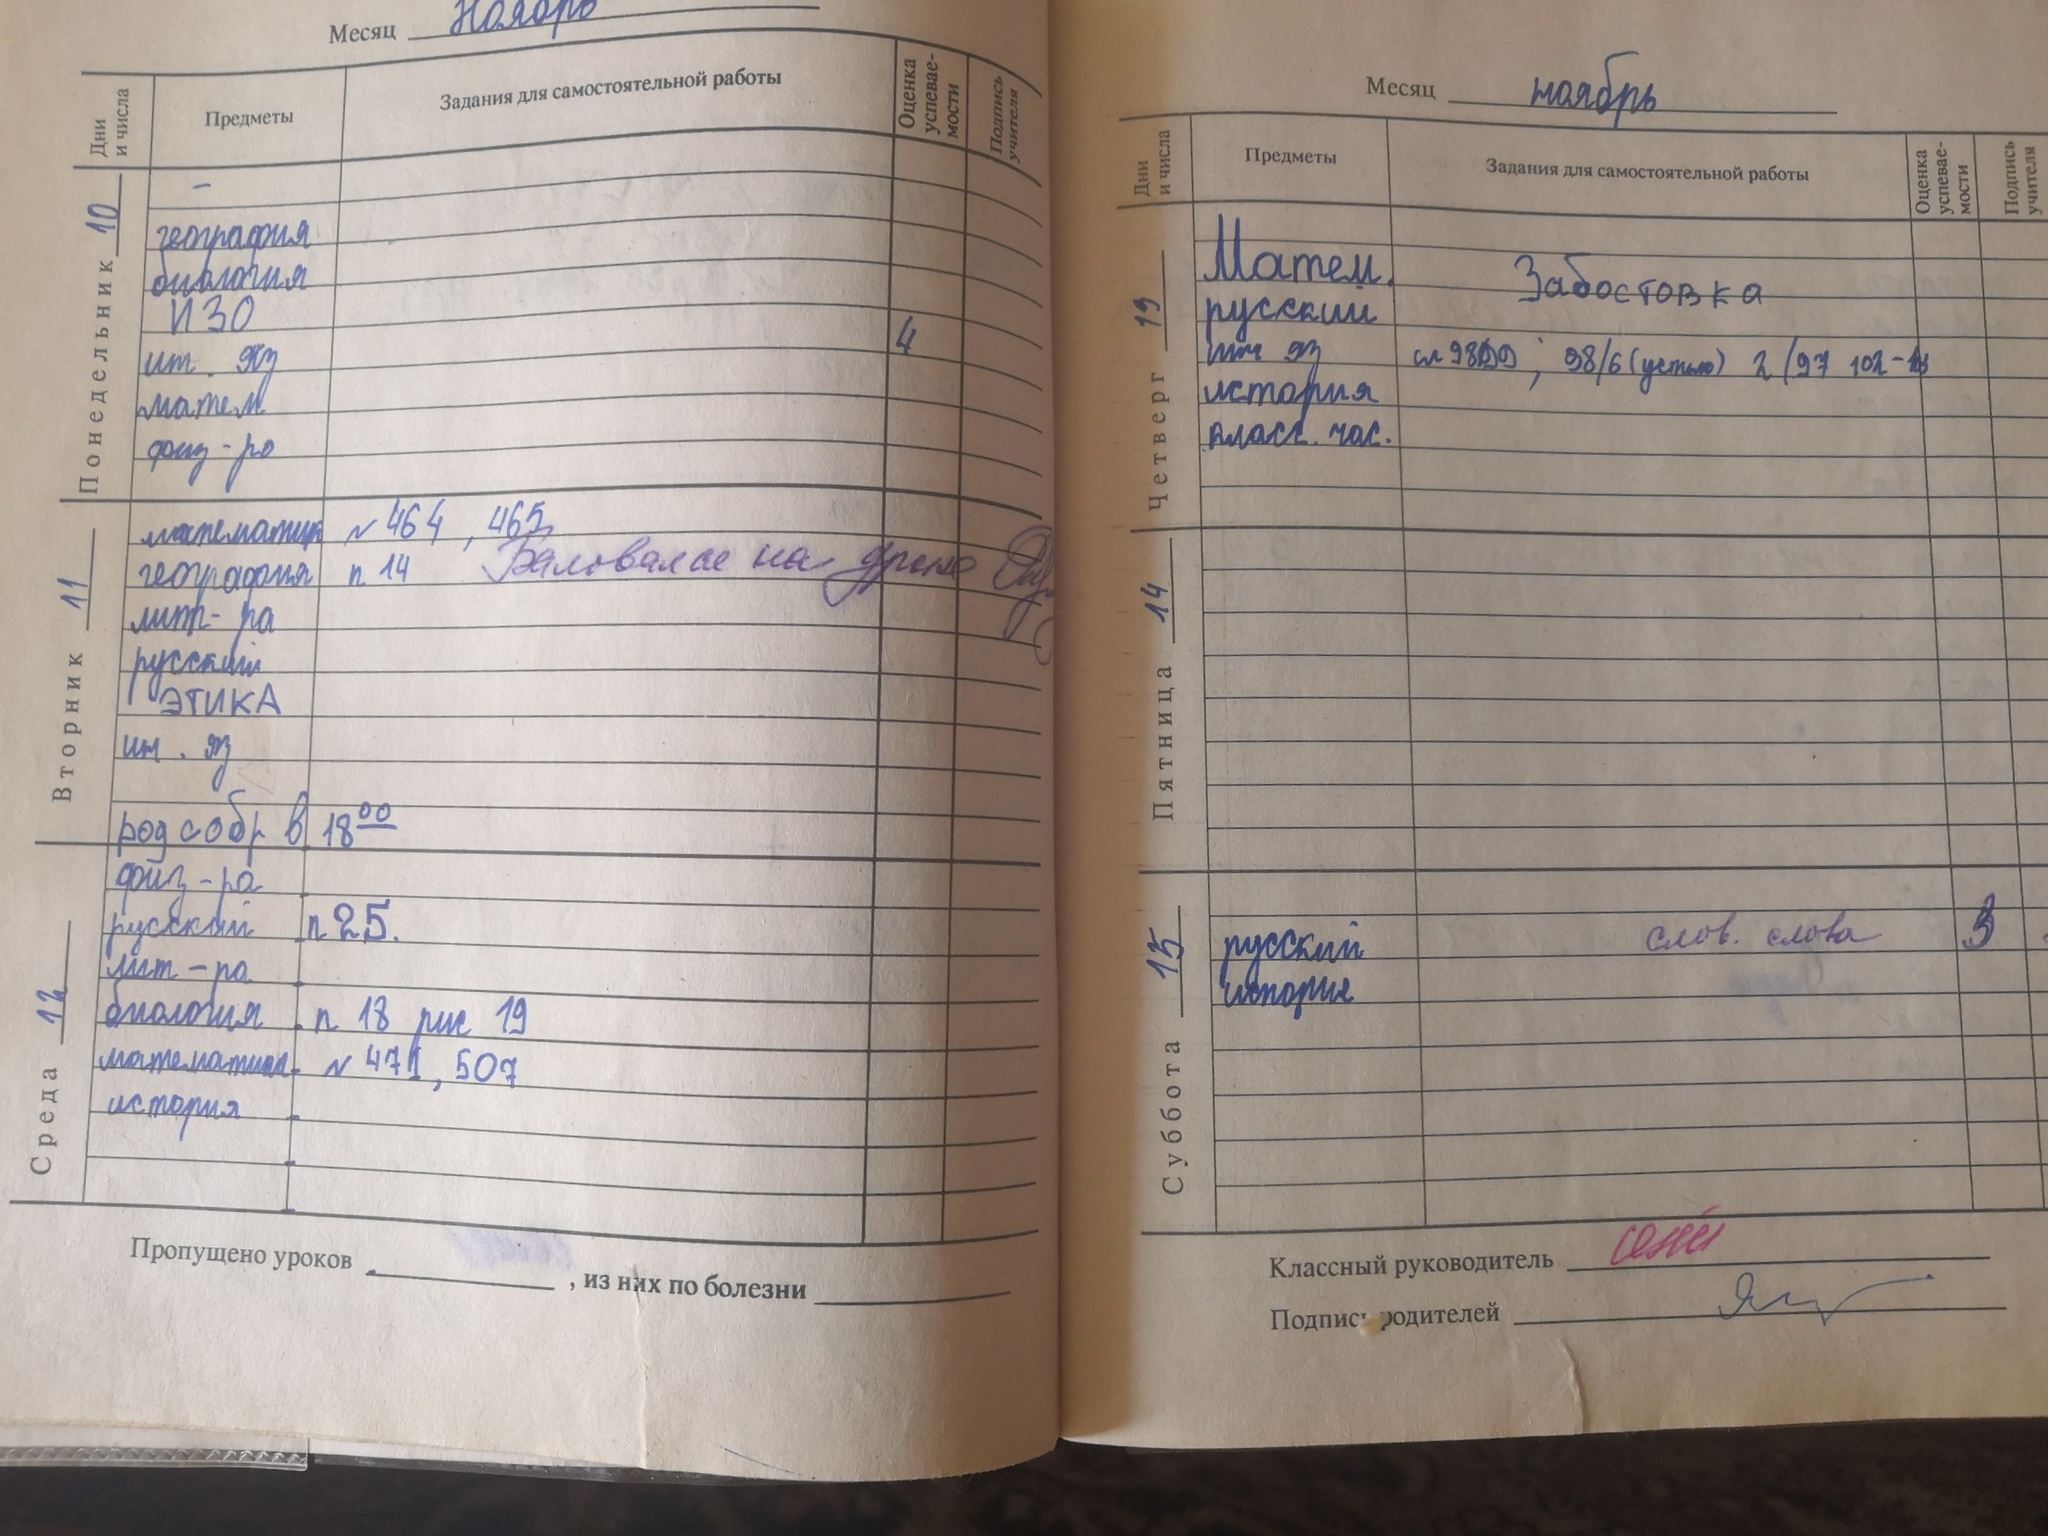 Месяц Ноябрь
Дни и числа Предметы Задания для самостоятельной работы Оценка успеваемости Подпись учителя
Понедельник 10
-
география
биология
ИЗО
ин. яз 4
матем
физ-ра
Вторник 11
математик № 464, 465
география п 14 Баловался на уроке
лит-ра
русский
ЭТИКА
ин. яз
род собр в 18 00
Среда 12
физ-ра
русский п 25.
лит-ра
биология п 18 рис 19
математика № 471, 507
история
Пропущено уроков , из них по болезни
Месяц ноябрь
Дни и числа Предметы Задания для самостоятельной работы Оценка успеваемости Подпись учителя
Четверг 13
Матем. Забостовка
русский
ин яз 98/6 (устно) 2/97
история
класс. час.
Пятница 14
Суббота 15
русский слов. слова 3
история
Классный руководитель
Подпись родителей